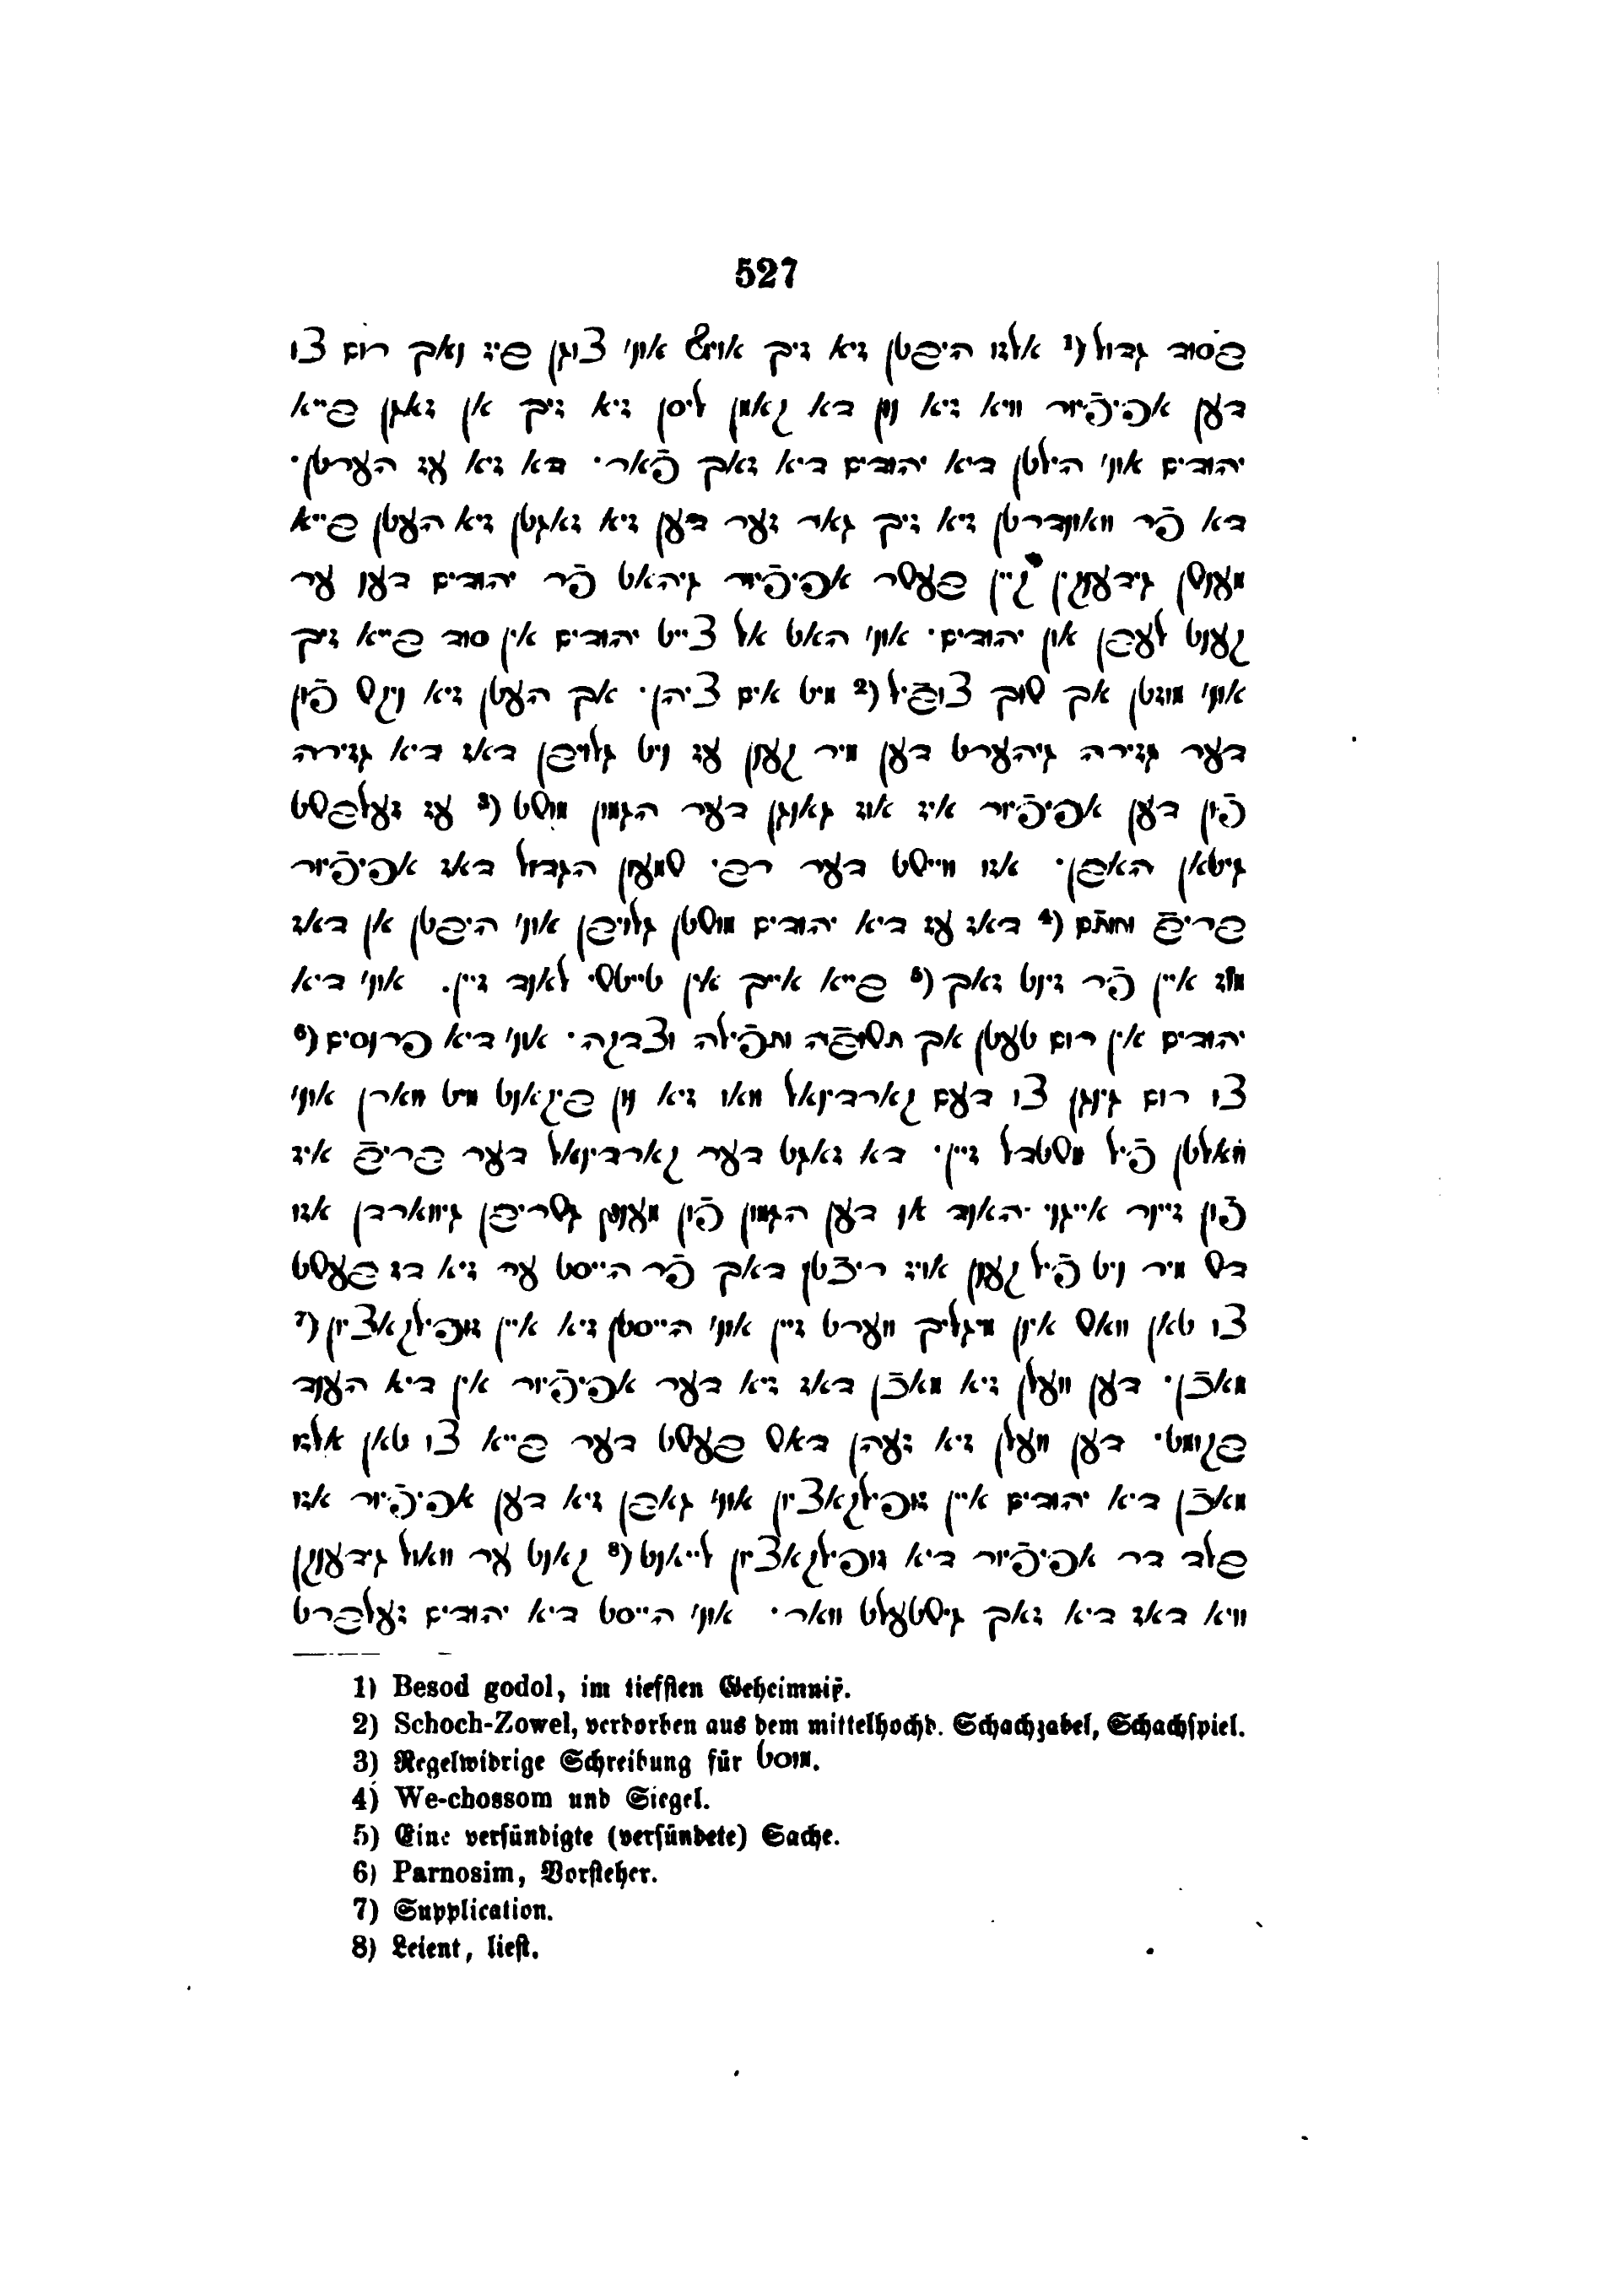 527
בסוד גדול (¹ אלזו היפטן זיא זיך אויף אונ׳ צוגן ביז נאך רום צו
דען אפיפֿיור וויא זיא נון דא קאמן ליסן זיא זיך אן זאגן בייא
יהודים אונ׳ הילטן דיא יהודים דיא זאך פֿאר· דא זיא עז הערטן·
דא פֿר וואונדרטן זיא זיך גאר זער דען זיא זאגטן זיא העטן בייא
מענשן גידענקין קיין בעשר אפיפֿיור גיהאט פֿר יהודים דענו ער
קענט לעבן און יהודים· אונ׳ האט אל צייט יהודים אין סוד בייא זיך
אונ׳ מוזטן אך שוך צובֿיל (² מיט אים ציהן· אך העטן זיא ניקש פֿון
דער גזירה גיהערט דען מיר קענן עז ניט גלויבן דאז דיא גזירה
פֿון דען אפיפֿיור איז אוז גאנגן דער הגמון מושט (³ עז זעלבשט
גיטאן האבן· אזו ווייסט דער רבי שמעון הגדול דאז אפיפֿיור
בריבֿ וחותם (⁴ דאז עז דיא יהודים מושטן גלויבן אונ׳ היפטן אן דאז
מוז איין פֿר זינט זאך (⁵ בייא אייך אין טייטשי לאנד זיין. אונ׳ דיא
יהודים אין רום טעטן אך תשובֿה ותפֿילה וצדקה· אונ׳ דיא פרנסים (⁶
צו רום גינגן צו דעם קארדינאל וואו זיא נון ביקאנט מיט ווארן אונ׳
וואלטן פֿיל משטדל זיין· דא זאגט דער קארדינאל דער בריבֿ איז
פֿון זיינר אייגני האנד אן דען הגמון פֿון מענץ גשריבן גיווארדן אזו
דש מיר ניט פֿיל קענן אויז ריכֿטן דאך פֿר הייסט ער זיא דז בעשט
צו טאן וואש אינן מיגליך ווערט זיין אונ׳ הייסטן זיא איין זופילקאציון (⁷
מאכֿן· דען וועלן זיא מאכֿן דאז זיא דער אפיפֿיור אין דיא הענד
בקומט· דען וועלן זיא זעהן דאש בעשט דער בייא צו טאן אלזו
מאכֿן דיא יהודים איין זופילקאציון אונ׳ גאבן זיא דען אפיפֿיור אזו
בלד דר אפיפֿיור דיא זופילקאציון לייאנט (⁸ קאנט ער וואול גידענקן
וויא דאז דיא זאך גישטעלט וואר· אונ׳ הייסט דיא יהודים זעלברט
1) Besod godol, im tiefsten Geheimniß.
2) Schoch-Zowel, verdorben aus dem mittelhochd. Schachzabel, Schachspiel.
3) Regelwidrige Schreibung für מוסט.
4) We-chossom und Siegel.
5) Eine versündigte (versündete) Sache.
6) Parnosim, Vorsteher.
7) Supplication.
8) Leient, liest.